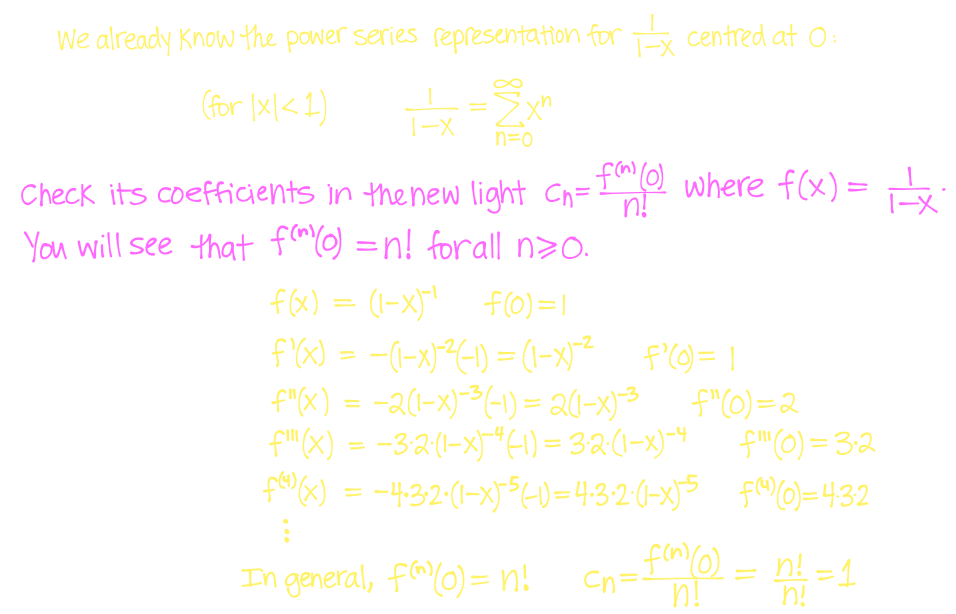 We already know the power series representation for 1/(1-x) centred at 0:
(for |x|<1) 1/(1-x) = ∑_{n=0}^{∞} xⁿ
Check its coefficients in the new light cₙ = f⁽ⁿ⁾(0)/n! where f(x) = 1/(1-x).
You will see that f⁽ⁿ⁾(0) = n! for all n ≥ 0.
f(x) = (1-x)⁻¹ f(0) = 1
f'(x) = -(1-x)⁻²(-1) = (1-x)⁻² f'(0) = 1
f''(x) = -2(1-x)⁻³(-1) = 2(1-x)⁻³ f''(0) = 2
f'''(x) = -3·2·(1-x)⁻⁴(-1) = 3·2·(1-x)⁻⁴ f'''(0) = 3·2
f⁽⁴⁾(x) = -4·3·2·(1-x)⁻⁵(-1) = 4·3·2·(1-x)⁻⁵ f⁽⁴⁾(0) = 4·3·2
⋮
In general, f⁽ⁿ⁾(0) = n! cₙ = f⁽ⁿ⁾(0)/n! = n!/n! = 1